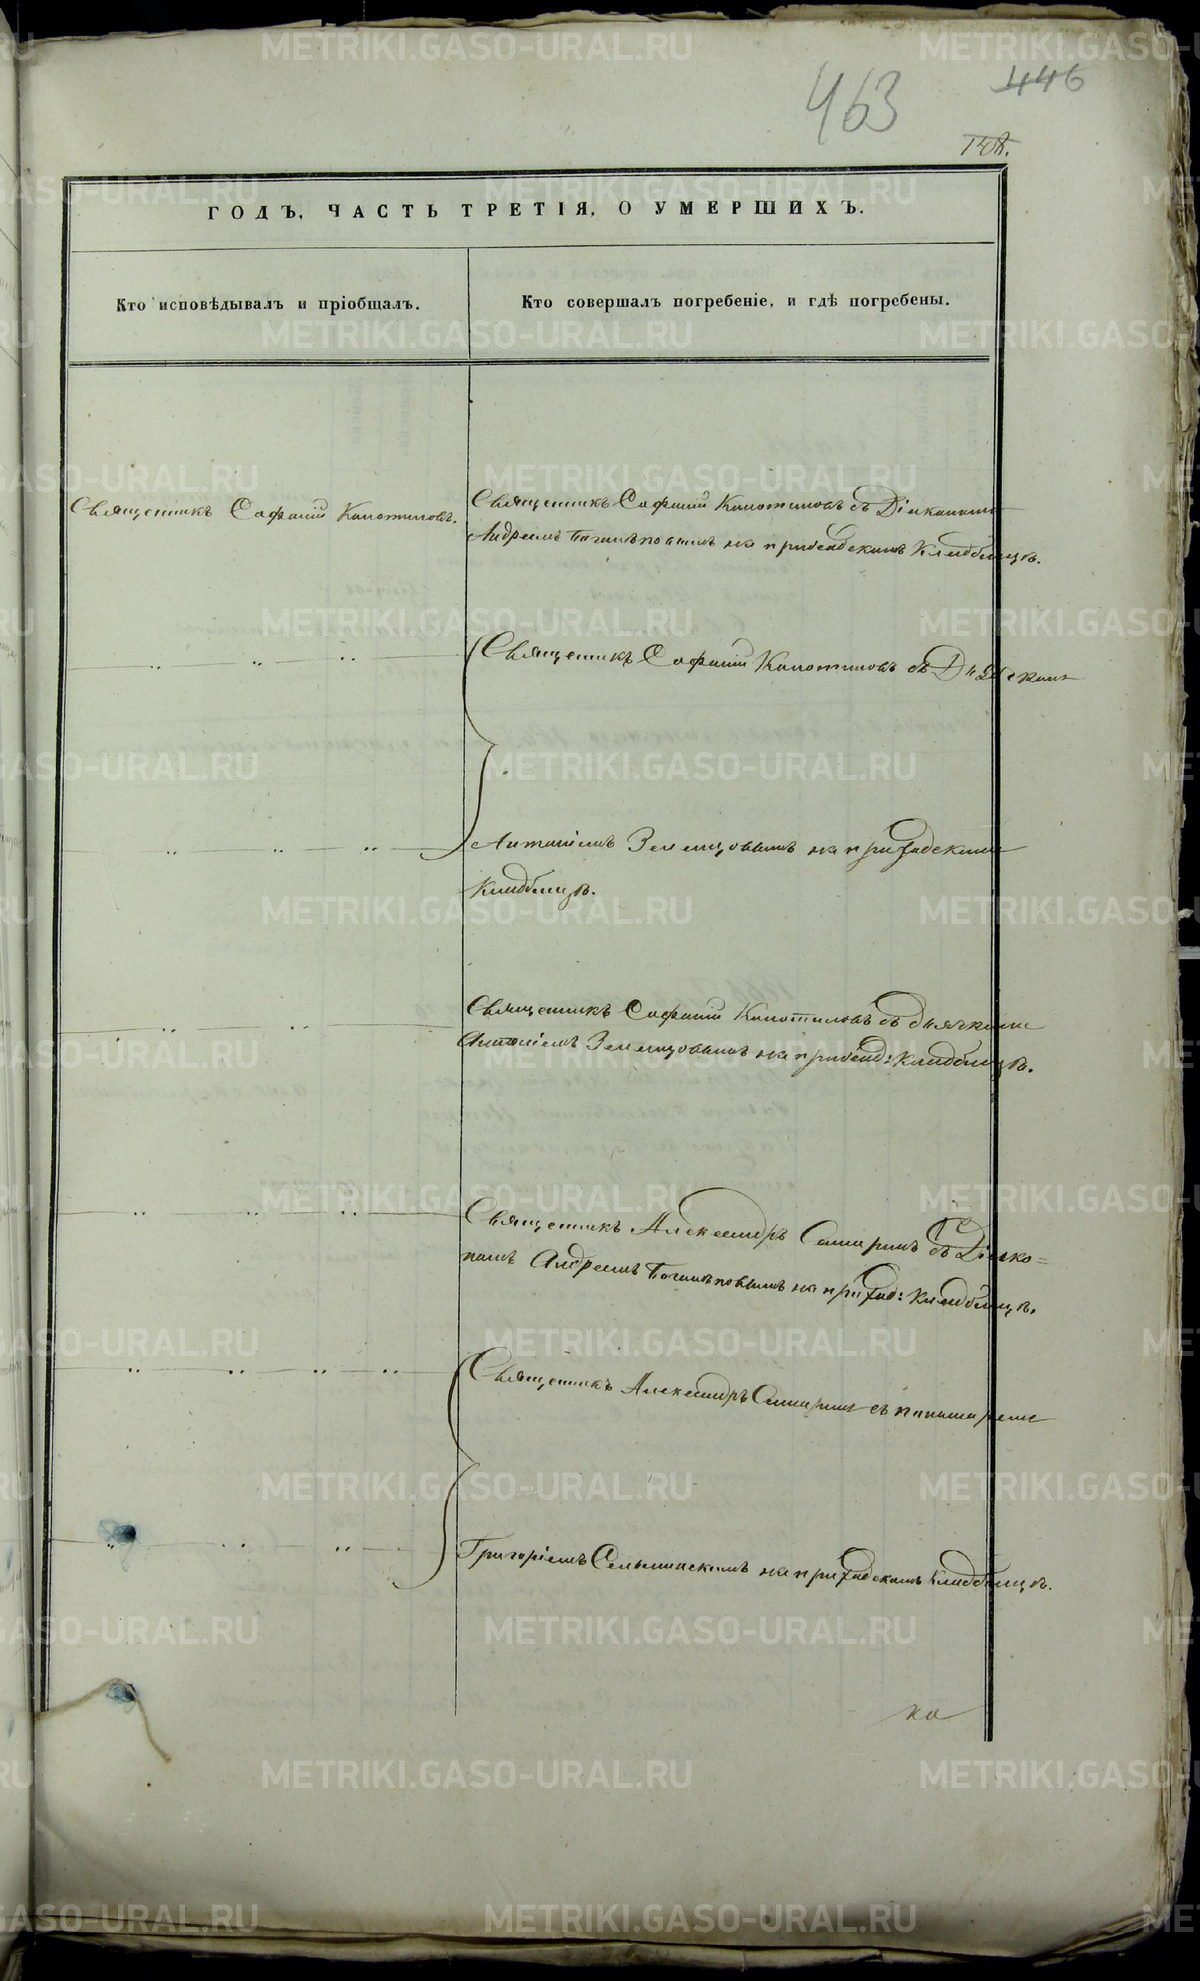 463
446
ГОДЪ, ЧАСТЬ ТРЕТІЯ, О УМЕРШИХЪ.
Кто исповѣдывалъ и пріобщалъ.
Кто совершалъ погребеніе, и гдѣ погребены.
Священникъ Софоній Капотиловъ.
Священникъ Софоній Капотиловъ съ Діакономъ
Андреемъ на приходскомъ Кладбищѣ.
Священникъ Софоній Капотиловъ съ
Антоніемъ Земленцовымъ на приходскомъ
Кладбищѣ.
Священникъ Софоній Капотиловъ съ дьячкомъ
Антоніемъ Земленцовымъ на приход: кладбищѣ.
Священникъ Александръ съ Діако=
номъ Андреемъ на приход: кладбищѣ.
Священникъ Александръ съ пономаремъ
Григоріемъ на приходскомъ Кладбищѣ.
METRIKI.GASO-URAL.RU